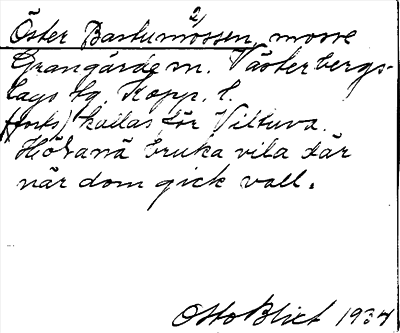 2)
Öster Bastumossen, mosse
Grangärde sn. Västerbergs-
lags tg Kopp. l.
(forts) kallas för Viltuva.
Hötanä bruka vila där
när dom gick vall.
Otto Blixt 1934